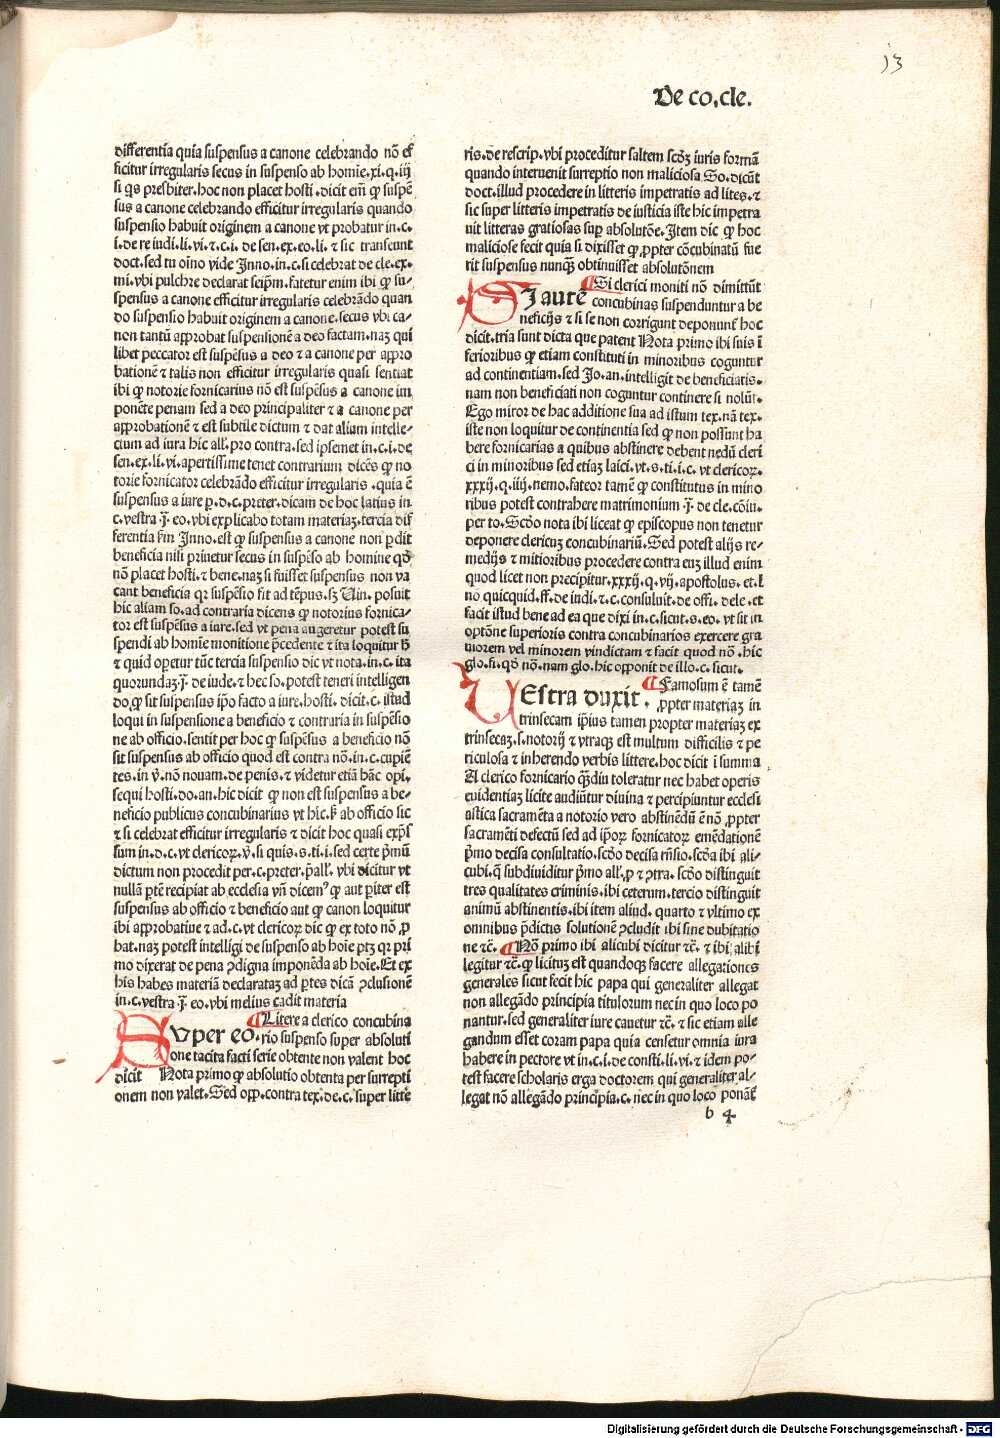 13
De co.cle.
differentia quia suspensus a canone celebrando nō ef
ficitur irregularis secus in suspenso ab homīe.xi.q.iij
si q̄s presbiter.hoc non placet hosti.dicit em̄ ꝙ suspē
sus a canone celebrando efficitur irregularis quando
suspensio habuit originem a canone vt probatur in.c.
i.de re iudi.li.vi.⁊.c.i.de sen.ex.eo.li.⁊ sic transeunt
doct.sed tu oīno vide Inno.in.c.si celebrat de cle.ex.
mi.vbi pulchre declarat seip̄m.fatetur enim ibi ꝙ su⸗
spensus a canone efficitur irregularis celebrādo quan
do suspensio habuit originem a canone.secus vbi ca⸗
non tantū approbat suspensionē a deo factam.naꝫ qui
libet peccator est suspēsus a deo ⁊ a canone per appro
bationē ⁊ talis non efficitur irregularis quasi sentiat
ibi ꝙ notorie fornicarius nō est suspēsus a canone im
ponēte penam sed a deo principaliter ⁊ a canone per
approbationē ⁊ est subtile dictum ⁊ dat alium intelle⸗
ctum ad iura hic all'.pro contra.sed ipsemet in.c.i.de
sen.ex.li.vi.apertissime tenet contrarium dicēs ꝙ no
torie fornicator celebrādo efficitur irregularis.quia ē
suspensus a iure p.d.c.preter.dicam de hoc latius in
c.vestra.j̄.eo.vbi explicabo totam materiaꝫ.tercia dif
ferentia f̄m Inno.est ꝙ suspensus a canone non ꝑdit
beneficia nisi priuetur secus in suspēso ab homine qd̄
nō placet hosti.⁊ bene.naꝫ si fuisset suspensus non va
cant beneficia qꝛ suspēsio fit ad tēpus.sꝫ Uin.posuit
hic aliam so.ad contraria dicens ꝙ notorius fornica⸗
tor est suspēsus a iure.sed vt pena augeretur potest su
spendi ab homīe monitione p̄cedente ⁊ ita loquitur h̄
⁊ quid operetur tūc tercia suspensio dic vt nota.in.c.ita
quorundaꝫ.j̄.de iude.⁊ hec so.potest teneri intelligen
do.ꝙ sit suspensus ip̄o facto a iure.hosti.dicit.c.istud
loqui in suspensione a beneficio ⁊ contraria in suspēsio
ne ab officio.sentit per hoc ꝙ suspēsus a beneficio nō
sit suspensus ab officio quod est contra no.in.c.cupiē
tes.in ꝟ.nō nouam.de penis.⁊ videtur etiā hāc opi.
sequi hosti.do.an.hic dicit ꝙ non est suspensus a be⸗
neficio publicus concubinarius vt hic.ẜ ab officio sic
⁊ si celebrat efficitur irregularis ⁊ dicit hoc quasi exp̄s
sum in.d.c.vt clericoꝝ.ꝟ.si quis.s.ti.i.sed certe p̄mū
dictum non procedit per.c.preter.ꝑall'.vbi dicitur vt
nullā ꝑtē recipiat ab ecclesia vn̄ dicemꝰ ꝙ aut ꝑiter est
suspensus ab officio ⁊ beneficio aut ꝙ canon loquitur
ibi approbatiue ⁊ ad.c.vt clericoꝝ dic ꝙ ex toto nō ꝓ
bat.naꝫ potest intelligi de suspenso ab hoīe ptꝫ qꝛ pri
mo dixerat de pena ꝯdigna imponēda ab hoīe.Et ex
his habes materiā declarataꝫ ad ꝑtes dicā ꝯclusionē
in.c.vestra.j̄.eo.vbi melius cadit materia
SUper eo. ¶Litere a clerico concubina
rio suspenso super absoluti
one tacita facti serie obtente non valent hoc
dicit Nota primo ꝙ absolutio obtenta per surrepti
onem non valet.Sed opp.contra tex.de.c.super litte
ris.de rescrip.vbi proceditur saltem scd̄ꝫ iuris formā
quando interuenit surreptio non maliciosa So.dicūt
doct.illud procedere in litteris impetratis ad lites.⁊
sic super litteris impetratis de iusticia iste hic impetra
uit litteras gratiosas suꝑ absolutōe.Item dic ꝙ hoc
maliciose fecit quia si dixisset ꝙ ꝓpter cōcubinatū fue
rit suspensus nunꝙ̄ obtinuisset absolutōnem
SI autē ¶Si clerici moniti nō dimittūt
concubinas suspenduntur a be
neficijs ⁊ si se non corrigunt deponunt' hoc
dicit.tria sunt dicta que patent Nota primo ibi suis ī
ferioribus ꝙ etiam constituti in minoribus coguntur
ad continentiam.sed Jo.an.intelligit de beneficiatis.
nam non beneficiati non coguntur continere si nolūt.
Ego miror de hac additione sua ad istum tex.nā tex.
iste non loquitur de continentia sed ꝙ non possunt ha
bere fornicarias a quibus abstinere debent nedū cleri
ci in minoribus sed etiaꝫ laici.vt.s.ti.i.c.vt clericoꝝ.
xxxij.q.iiij.nemo.fateor tamē ꝙ constitutus in mino
ribus potest contrahere matrimonium.j̄.de cle.cōiu.
per to.Scd̄o nota ibi liceat ꝙ episcopus non tenetur
deponere clericuꝫ concubinariū.Sed potest alijs re⸗
medijs ⁊ mitioribus procedere contra euꝫ illud enim
quod licet non precipitur.xxxij.q.vij.apostolus.et.l
nō quicquid.ff.de iudi.⁊.c.consuluit.de offi.dele.et
facit istud bene ad ea que dixi in.c.sicut.s.eo.vt sit in
optōne superioris contra concubinarios exercere gra
uiorem vel minorem vindictam ⁊ facit quod nō.hic
glo.fi.qd̄ nō.nam glo.hic opponit de illo.c.sicut.
UEstra duxit. ¶Famosum ē tamē
ꝓpter materiaꝫ in
trinsecam ip̄ius tamen propter materiaꝫ ex
trinsecaꝫ.s.notorij ⁊ vtraqꝫ est multum difficilis ⁊ pe
riculosa ⁊ inherendo verbis littere.hoc dicit ī summa
A clerico fornicario qꝙ̄diu toleratur nec habet operis
euidentiaꝫ licite audiūtur diuina ⁊ percipiuntur ecclesi
astica sacramēta a notorio vero abstinēdū ē nō ꝓpter
sacramēti defectū sed ad ip̄oꝝ fornicatoꝝ emēdationē
p̄mo decisa consultatio.scd̄o decisa rn̄sio.scd̄a ibi ali⸗
cubi.q̄ subdiuiditur p̄mo all'.ꝓ ⁊ ꝯtra.scd̄o distinguit
tres qualitates criminis.ibi ceterum.tercio distinguit
animū abstinentis.ibi item aliud.quarto ⁊ vltimo ex
omnibus p̄dictis solutionē ꝯcludit ibi sine dubitatio
ne ⁊c̄. ¶Nō primo ibi alicubi dicitur ⁊c̄.⁊ ibi alibi
legitur ⁊c̄.ꝙ licituꝫ est quandoqꝫ facere allegationes
generales sicut fecit hic papa qui generaliter allegat
non allegādo principia titulorum nec in quo loco po
nantur.sed generaliter iure cauetur ⁊c̄.⁊ sic etiam alle
gandum esset coram papa quia censetur omnia iura
habere in pectore vt in.c.i.de consti.li.vi.⁊ idem po⸗
test facere scholaris erga doctorem qui generaliter al⸗
legat nō allegādo principia.c.nec in quo loco ponāt'
b 4
Digitalisierung gefördert durch die Deutsche Forschungsgemeinschaft - DFG